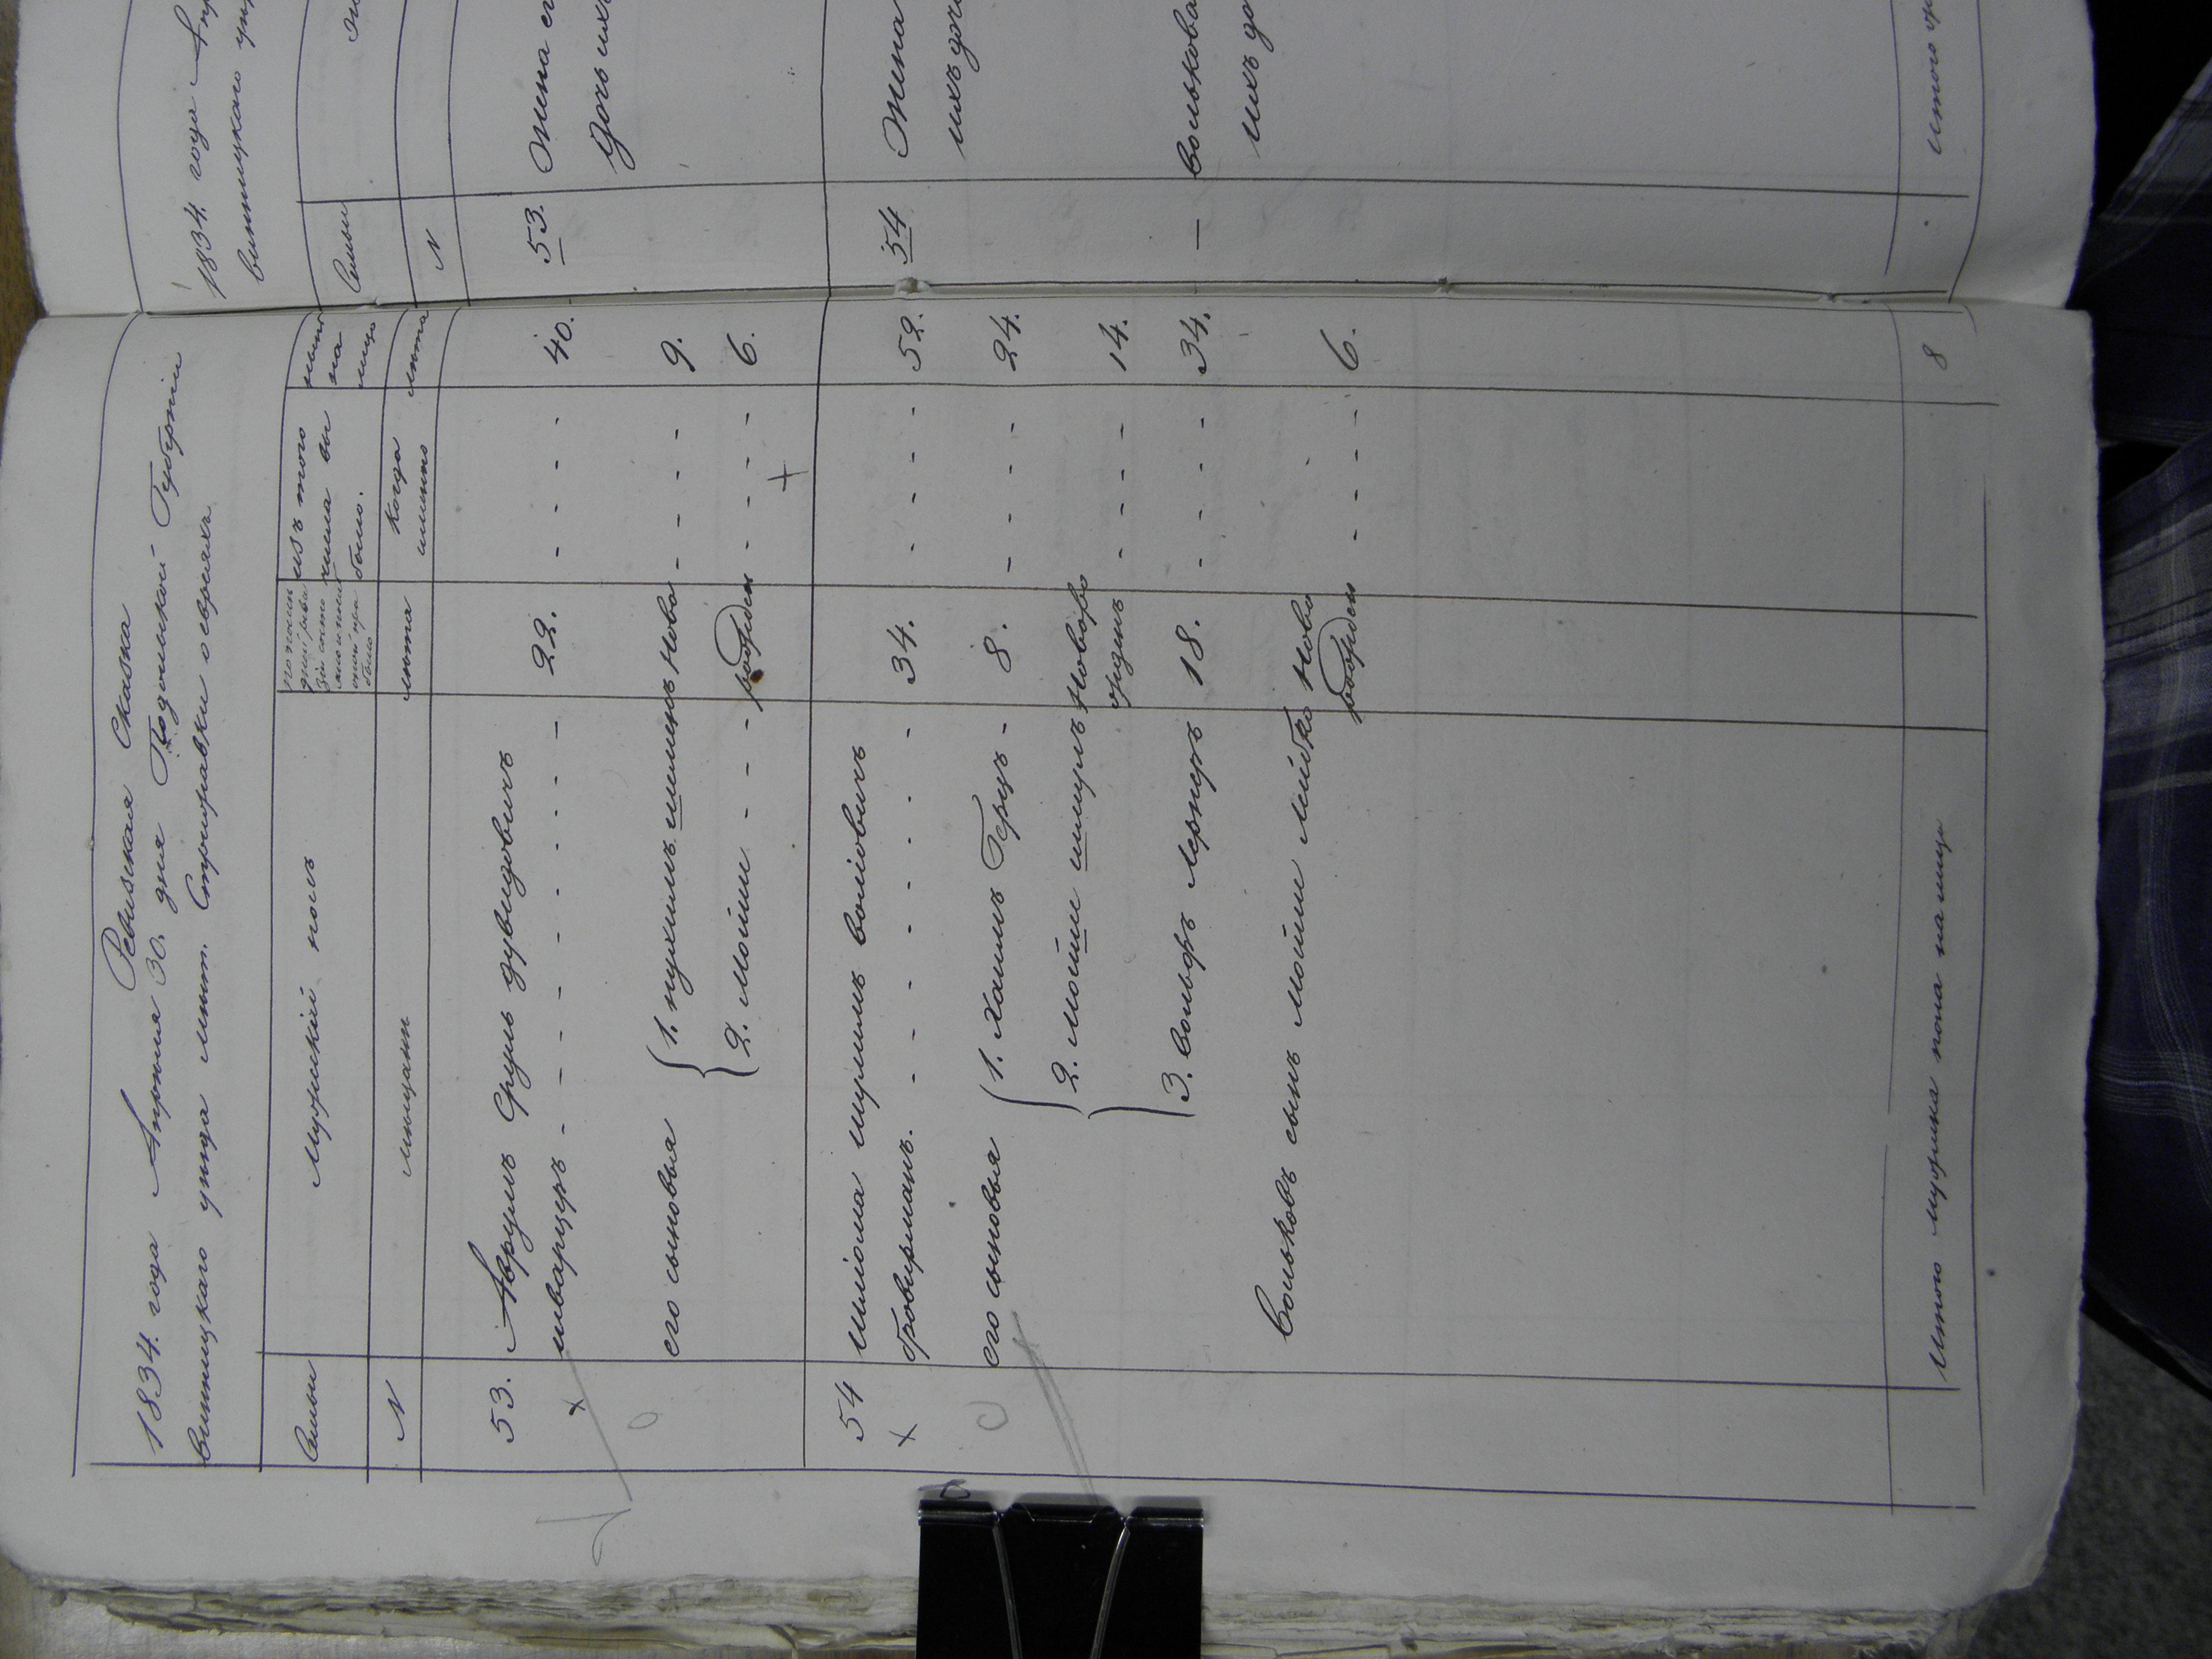 Ревизская Сказка
1834. года Апреля 30. дня Подольской Губерніи
винницкаго уезда мит. Стрижавки о евреяхъ
Семьи
Мужескій полъ
изъ того числа вы было.
ныне на лицо
N
мещане
лета
когда именно
лета
53. Аврумъ Сруль дувидовичъ
шварцеръ - - - - - - - 22. - - - - 40.
его сыновья 1. нухимъ шмикъ ново - - - - 9.
2. Мойши - - - рожден - - - - 6.
54 Шліома шулимъ воліовичъ
бровирманъ. - - - - - - 34. - - - - 52.
его сыновья 1. Хаимъ Герцъ - 8. - - - - 24.
2. Мойши шмулъ Новоро
жденъ - - - - 14.
3. Вольфъ Лернеръ 18. - - - - 34.
Вольковъ сынъ Мойши Лейбко Ново
рожден - - - - 6.
Итого мужска пола на лицо 8
1834. года Апр
винницкаго уез
Семьи
N
53. Жена ег
дочь ихъ
54 Жена
ихъ доч
— волькова
ихъ до
Итого